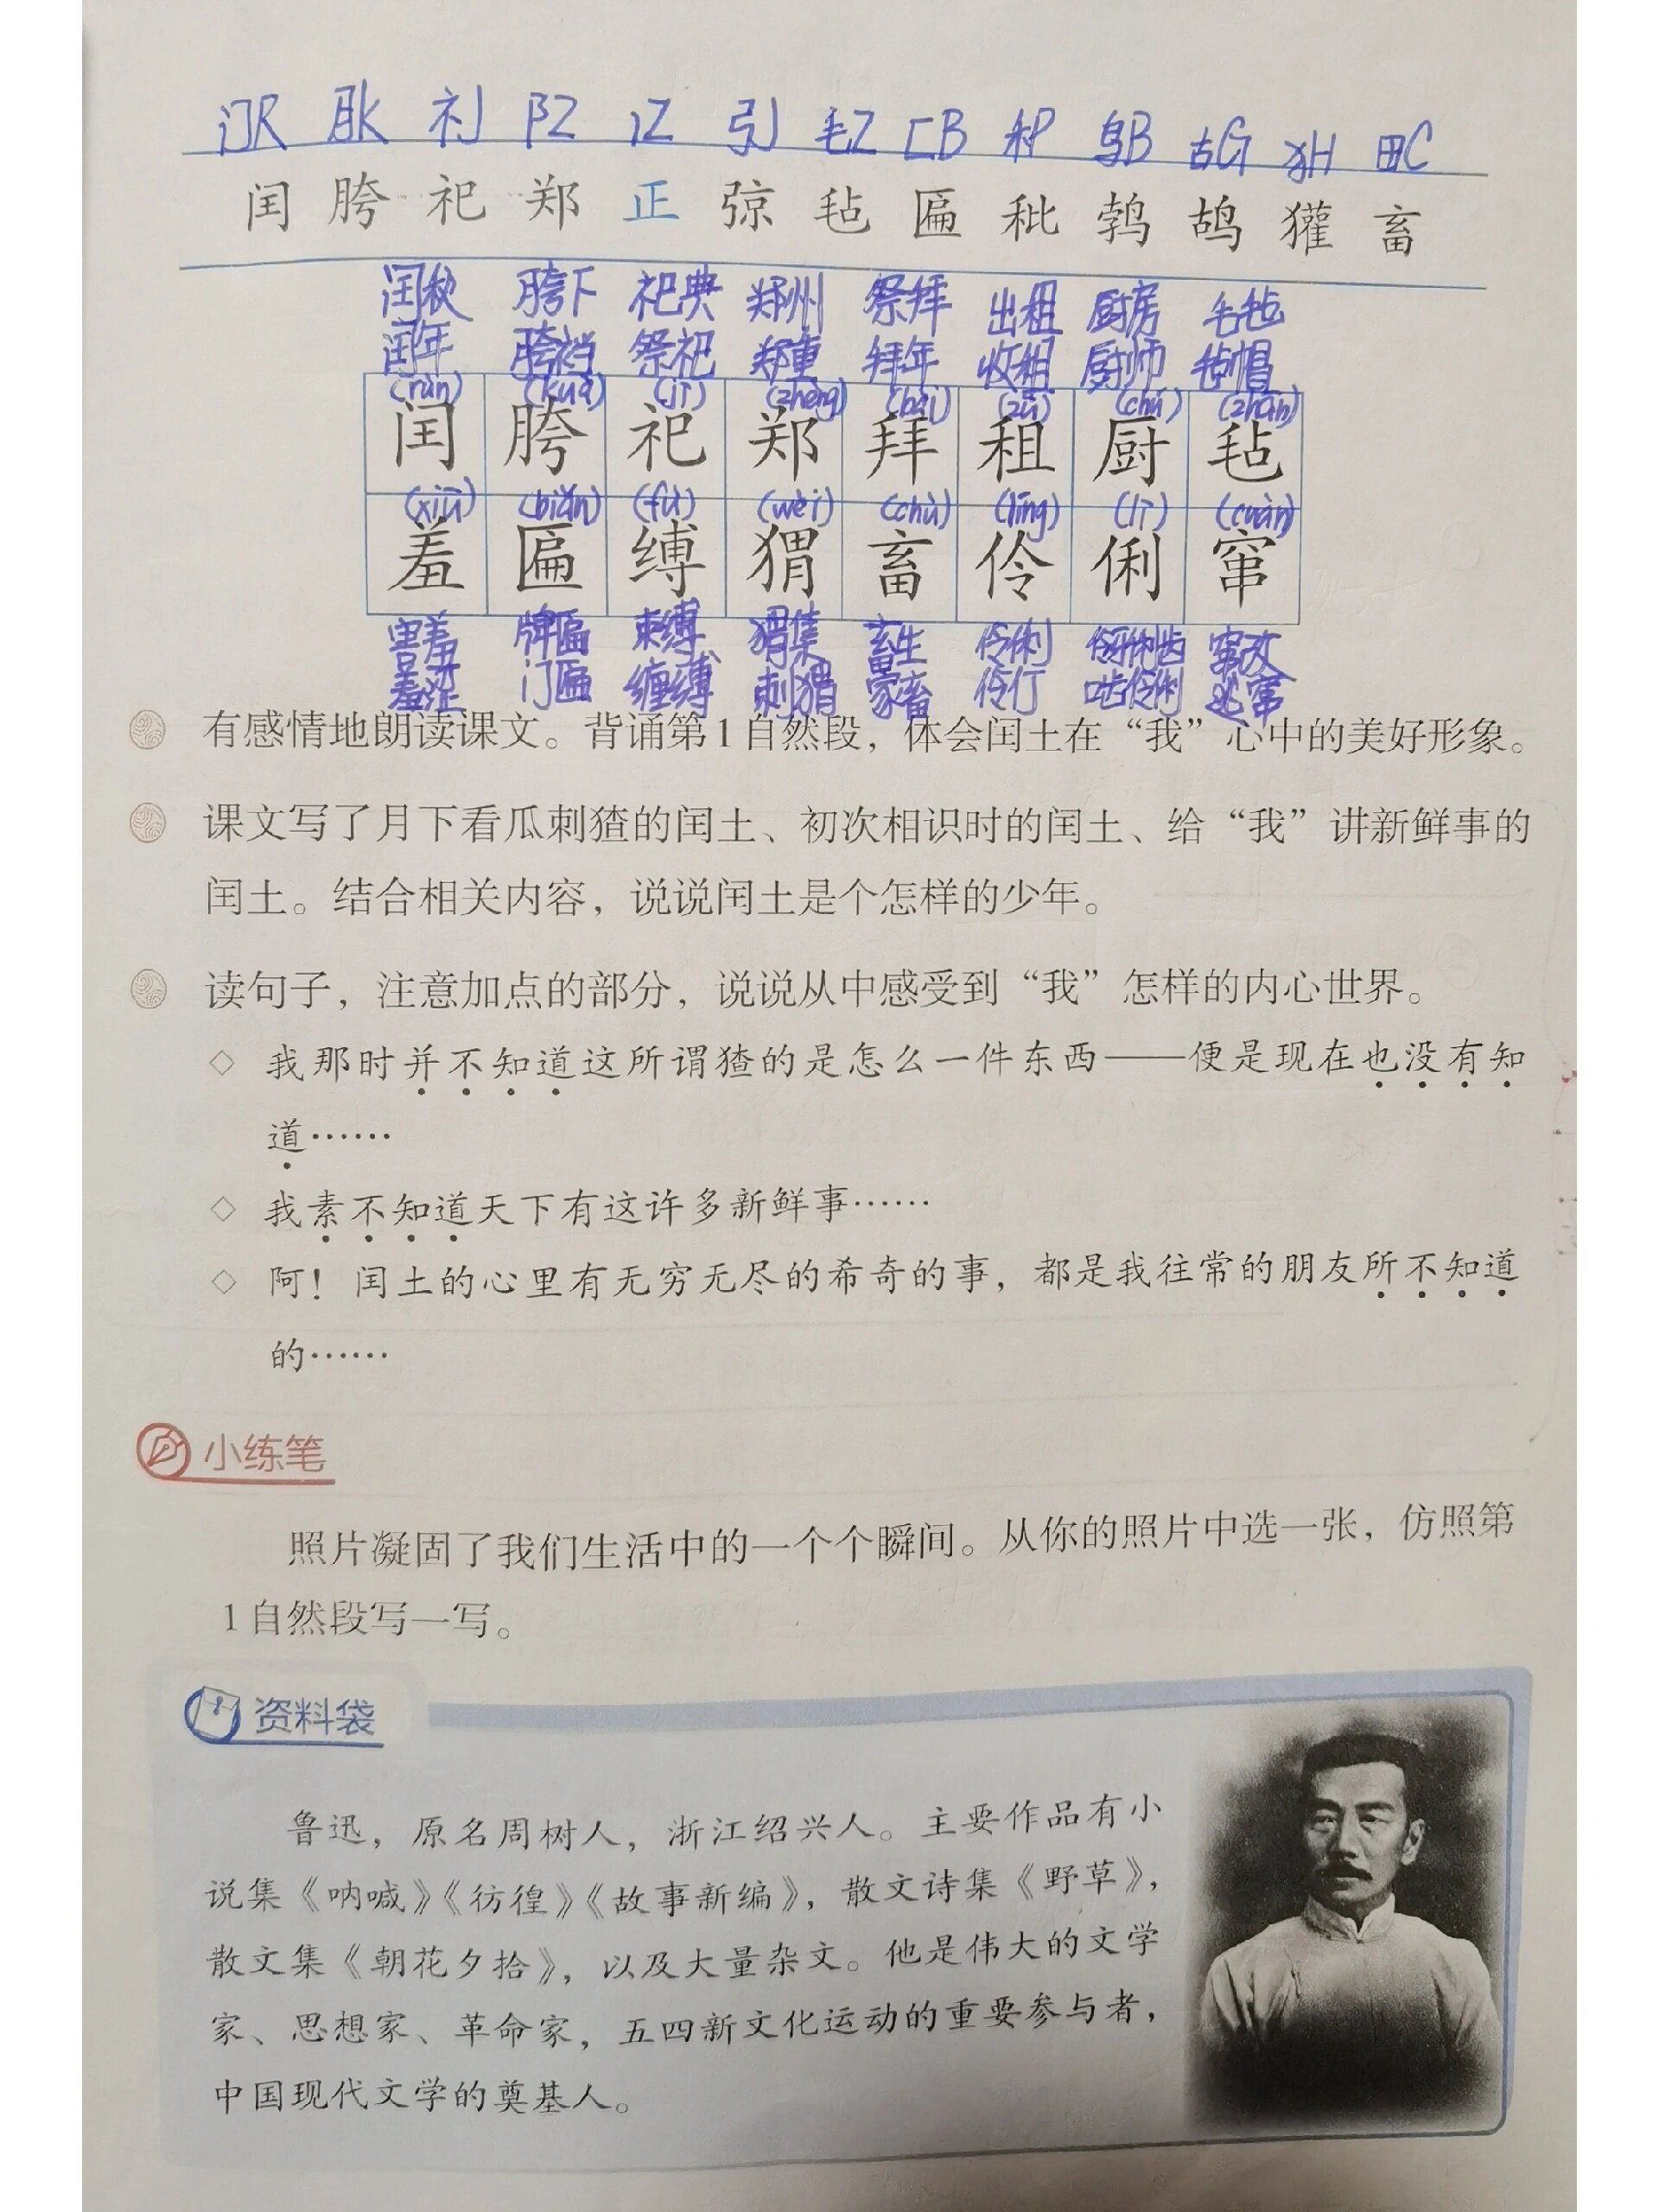 门R 月K 礻J 阝Z 讠Z 引J 毛Z 匚B 禾P 鸟B 古G 犭H 田C
闰 胯 祀 郑 正 弶 毡 匾 秕 鹁 鸪 獾 畜
闰秋 胯下 祀典 郑州 祭拜 出租 厨房 毛毡
闰年 胯裆 祭祀 郑重 拜年 收租 厨师 毡帽
(rùn) (kuà) (jī) (zhèng) (bài) (zū) (chú) (zhān)
闰 胯 祀 郑 拜 租 厨 毡
(xiū) (biǎn) (fù) (wèi) (chù) (líng) (lī) (cuàn)
羞 匾 缚 猬 畜 伶 俐 窜
害羞 牌匾 束缚 猬集 畜生 伶俐 窜改
羞涩 门匾 缠缚 刺猬 家畜 伶仃 逃窜
有感情地朗读课文。背诵第1自然段，体会闰土在“我”心中的美好形象。
课文写了月下看瓜刺猹的闰土、初次相识时的闰土、给“我”讲新鲜事的
闰土。结合相关内容，说说闰土是个怎样的少年。
读句子，注意加点的部分，说说从中感受到“我”怎样的内心世界。
◇ 我那时并不知道这所谓猹的是怎么一件东西——便是现在也没有知
道……
◇ 我素不知道天下有这许多新鲜事……
◇ 阿！闰土的心里有无穷无尽的希奇的事，都是我往常的朋友所不知道
的……
小练笔
照片凝固了我们生活中的一个个瞬间。从你的照片中选一张，仿照第
1自然段写一写。
资料袋
鲁迅，原名周树人，浙江绍兴人。主要作品有小
说集《呐喊》《彷徨》《故事新编》，散文诗集《野草》，
散文集《朝花夕拾》，以及大量杂文。他是伟大的文学
家、思想家、革命家，五四新文化运动的重要参与者，
中国现代文学的奠基人。